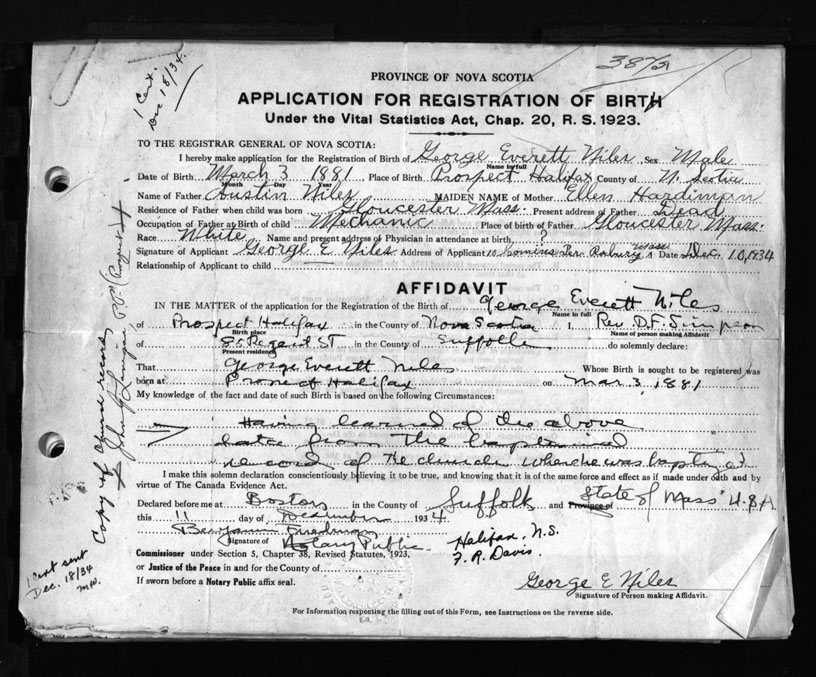 1 Cert.
Dec 18/34.
PROVINCE OF NOVA SCOTIA
APPLICATION FOR REGISTRATION OF BIRTH
Under the Vital Statistics Act, Chap. 20, R. S. 1923.
TO THE REGISTRAR GENERAL OF NOVA SCOTIA:
I hereby make application for the Registration of Birth of George Everett Niles Sex Male
Name in full
Date of Birth March 3 1881 Place of Birth Prospect Halifax County of N. Scotia
Month Day Year
Name of Father Austin Niles MAIDEN NAME of Mother Ellen Hardiman
Residence of Father when child was born Gloucester Mass. Present address of Father Dead
Occupation of Father at Birth of child Mechanic Place of birth of Father Gloucester Mass.
Race White Name and present address of Physician in attendance at birth, ?
Signature of Applicant George E Niles Address of Applicant 10 Ter. Roxbury Mass Date Dec. 10, 1934
Relationship of Applicant to child
AFFIDAVIT
IN THE MATTER of the application for the Registration of the Birth of George Everett Niles
Name in full
of Prospect Halifax in the County of Nova Scotia I, Rev. D.F. Simpson
Birth place Name of person making Affidavit
of 85 Regent ST in the County of Suffolk do solemnly declare:
Present residence
That George Everett Niles Whose Birth is sought to be registered was
born at Prospect Halifax on Mar 3, 1881
My knowledge of the fact and date of such Birth is based on the following Circumstances:
Having learned of the above
date from the baptismal
record of the church where he was baptized
I make this solemn declaration conscientiously believing it to be true, and knowing that it is of the same force and effect as if made under oath and by
virtue of The Canada Evidence Act.
Declared before me at Boston in the County of Suffolk and Province of State of Mass U.S.A
this 11 day of December 1934
Benjamin Friedman
Signature of Notary Public
Halifax, N.S.
F. R. Davis.
Commissioner under Section 5, Chapter 38, Revised Statutes, 1923,
or Justice of the Peace in and for the County of
If sworn before a Notary Public affix seal.
George E Niles
Signature of Person making Affidavit.
For Information respecting the filling out of this Form, see Instructions on the reverse side.
Copy of Church record
1 Cert sent
Dec. 18/34